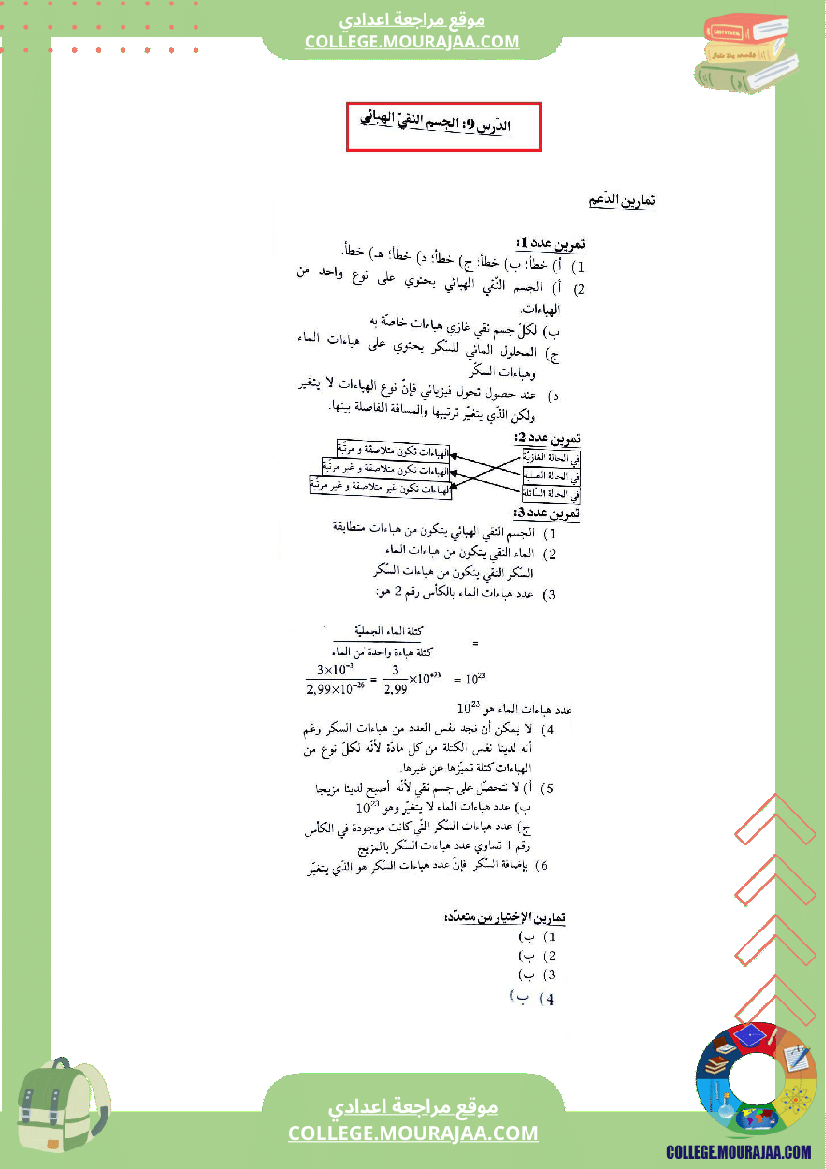 موقع مراجعة اعدادي
COLLEGE.MOURAJAA.COM
الدّرس 9: الجسم النقيّ الهبائي
تمارين الدّعم
تمرين عدد 1:
1) أ) خطأ؛ ب) خطأ؛ ج) خطأ؛ د) خطأ؛ هـ) خطأ.
2) أ) الجسم النّقي الهبائي يحتوي على نوع واحد من
الهباءات.
ب) لكلّ جسم نقي غازي هباءات خاصّة به
ج) المحلول المائي للسّكر يحتوي على هباءات الماء
وهباءات السكّر
د) عند حصول تحول فيزيائي فإنّ نوع الهباءات لا يتغير
ولكن الذّي يتغيّر ترتيبها والمسافة الفاصلة بينها.
تمرين عدد 2:
في الحالة الغازيّة
الهباءات تكون متلاصقة و مرتّبة
في الحالة الصلبة
الهباءات تكون متلاصقة و غير مرتّبة
في الحالة السّائلة
لهباءات تكون غير متلاصقة و غير مرتّبة
تمرين عدد 3:
1) الجسم النقي الهبائي يتكون من هباءات متطابقة
2) الماء النقي يتكون من هباءات الماء
السّكر النقي يتكون من هباءات السّكر
3) عدد هباءات الماء بالكأس رقم 2 هو:
كتلة الماء الجمليّة
=
كتلة هباءة واحدة من الماء
3×10⁻³ / 2,99×10⁻²⁶ = 3 / 2,99 ×10⁺²³ = 10²³
عدد هباءات الماء هو 10²³
4) لا يمكن أن نجد نفس العدد من هباءات السكر ورغم
أنه لدينا نفس الكتلة من كل مادّة لأنّه لكلّ نوع من
الهباءات كتلة تميّزها عن غيرها.
5) أ) لا نتحصّل على جسم نقي لأنّه أصبح لدينا مزيجا
ب) عدد هباءات الماء لا يتغيّر وهو 10²³
ج) عدد هباءات السّكر التّي كانت موجودة في الكأس
رقم 1 تساوي عدد هباءات السّكر بالمزيج
6) بإضافة السّكر فإنّ عدد هباءات السكر هو الذّي يتغيّر
تمارين الإختيار من متعدّد:
1) ب)
2) ب)
3) ب)
4) ب)
موقع مراجعة اعدادي
COLLEGE.MOURAJAA.COM
COLLEGE.MOURAJAA.COM